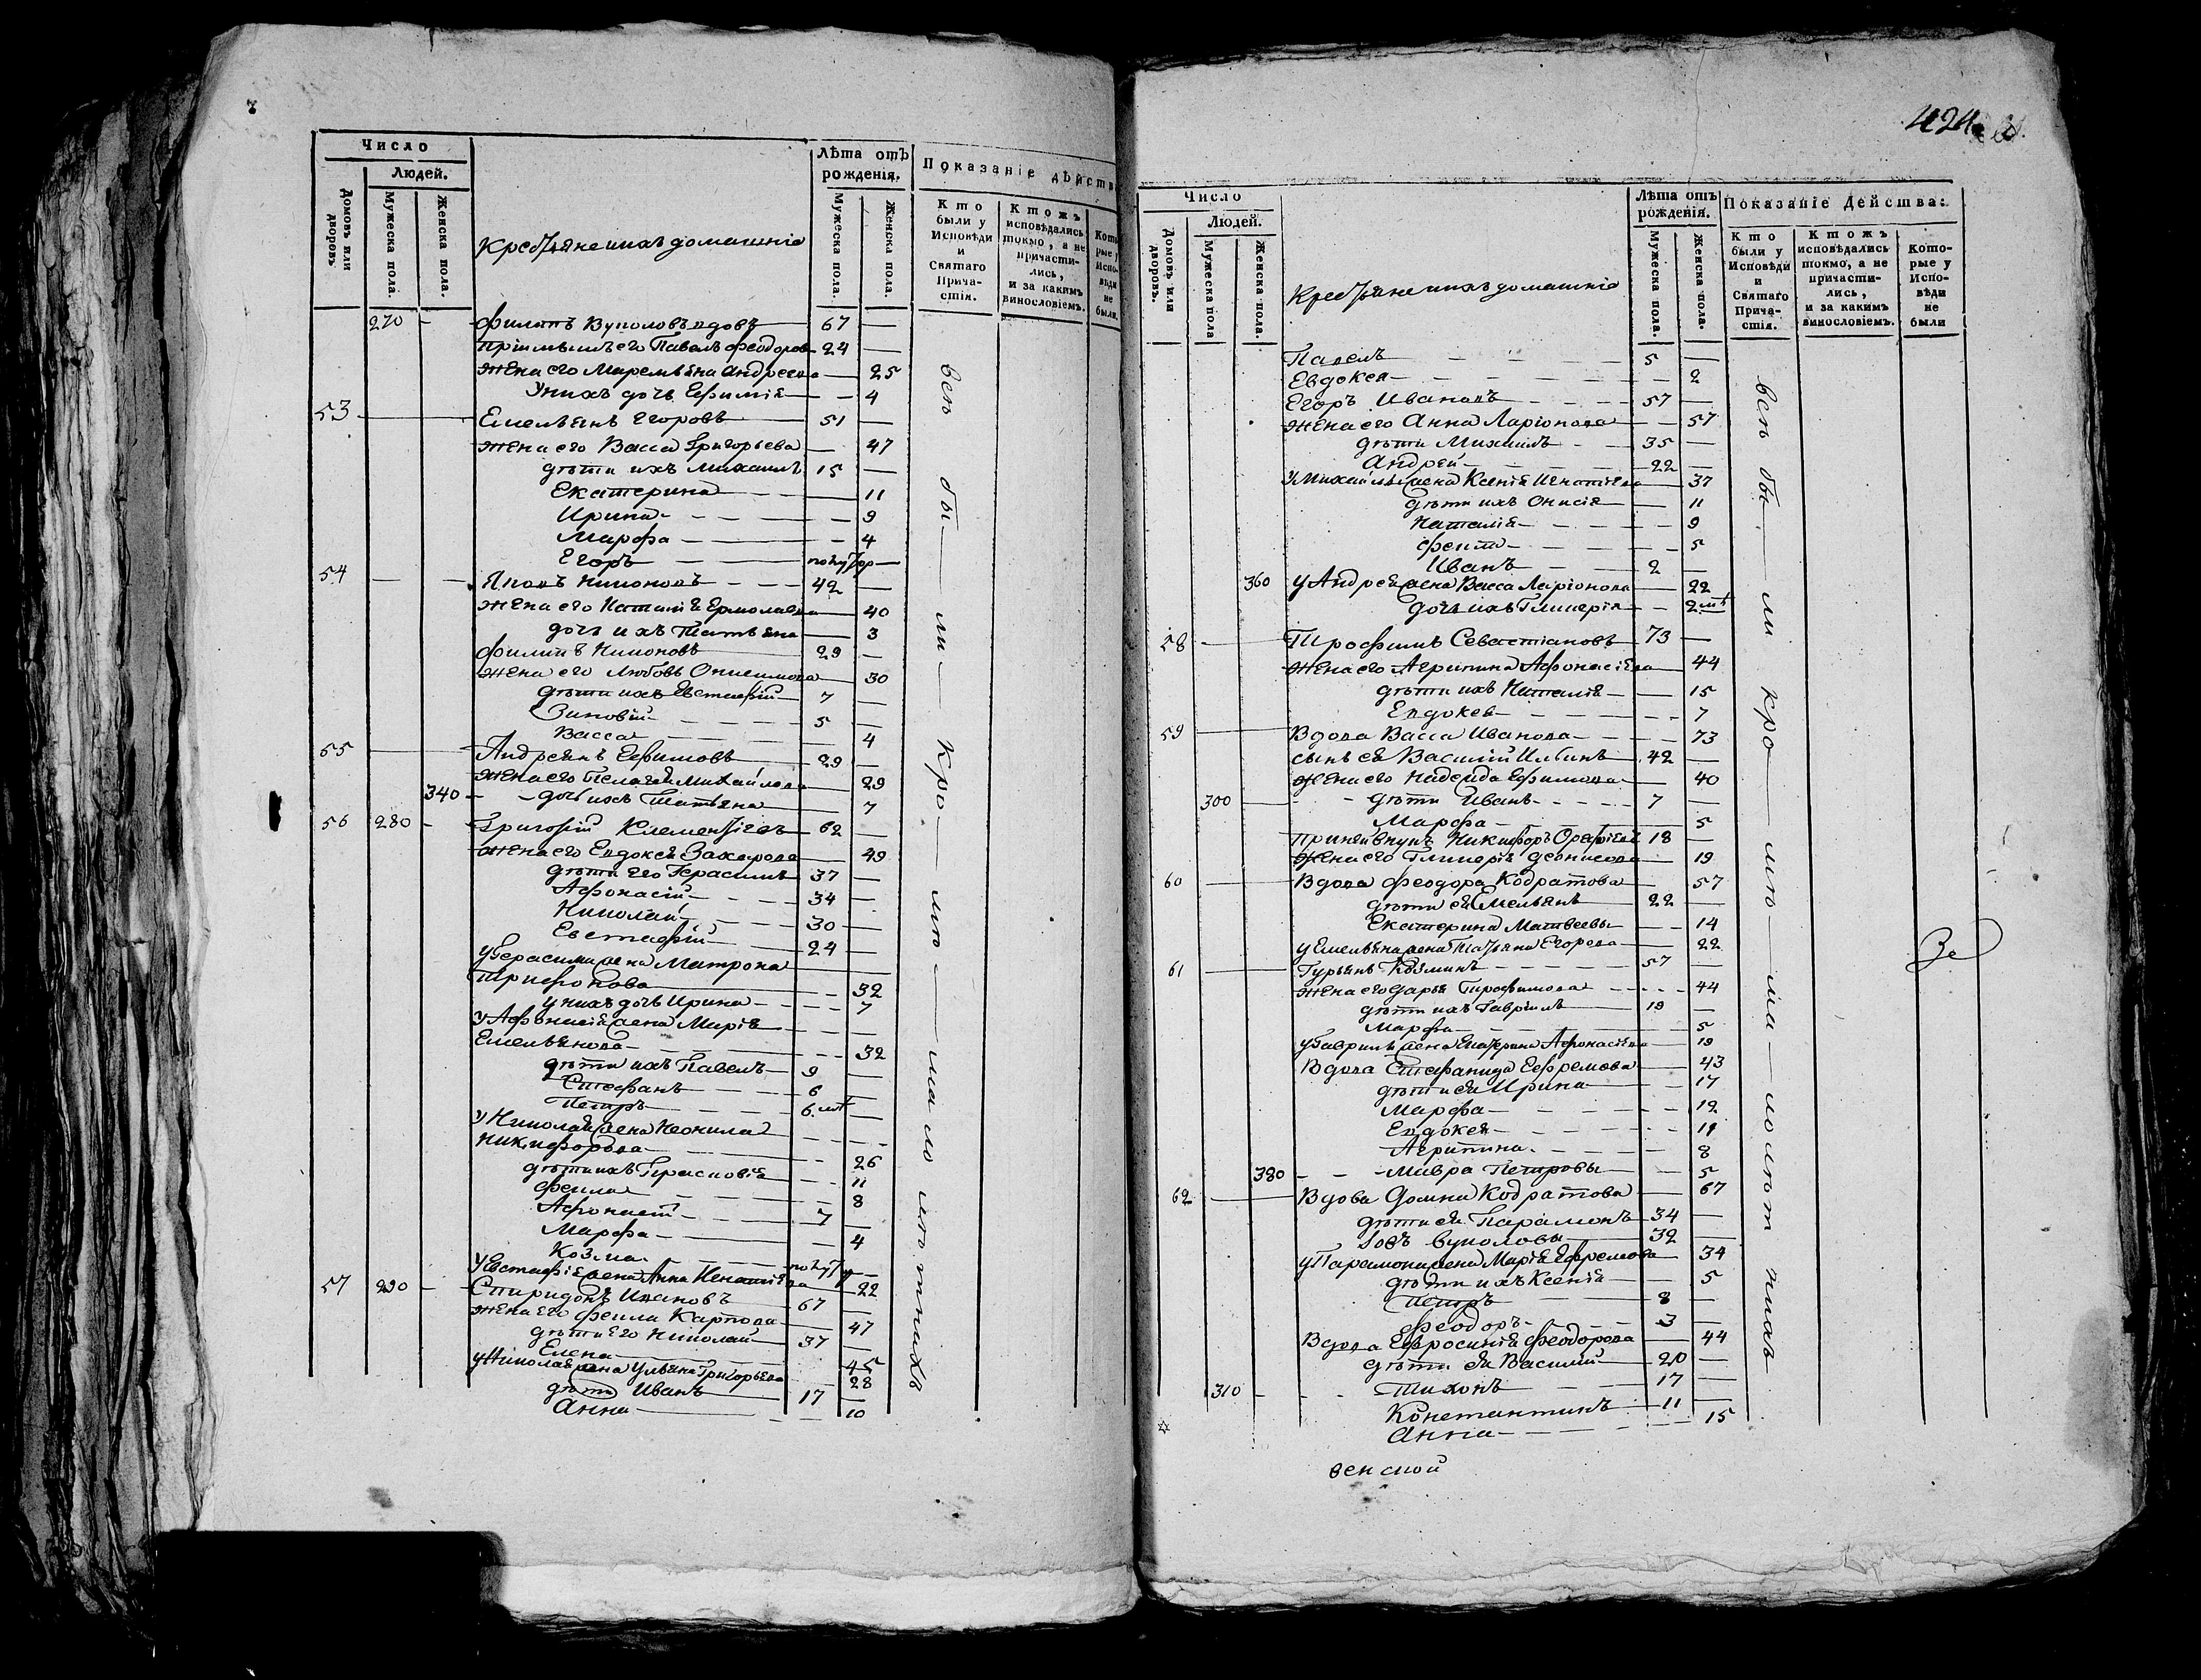 Число
Людей.
Домовъ или дворовъ
Мужеска пола.
Женска пола.
Крестьяне и ихъ домашніе
Лѣта отъ рожденія.
Мужеска пола.
Женска пола.
Показаніе дѣйств
Кто были у Исповѣди и Святаго Прича- стія.
Ктожъ исповѣдались токмо, а не причасти- лись, и за какимъ винословіемъ.
Кото рые у Испо- вѣди не были.
270 - Филипъ Вуколовъ вдовъ 67 —
пріимышъ его Павелъ Феодоров 24 —
жена его Маремьяна Андреева — 25
У нихъ дочь Ефимія — 4
53 Емельянъ Егоровъ 51 —
жена его Васса Григорьева — 47
дѣти ихъ Михаилъ 15 —
Екатерина — 11
Ирина — 9
Марфа — 4
Егоръ полутор —
54 Яковъ Никоновъ 42 —
жена его Наталія Ермолаева — 40
дочь ихъ Татьяна — 3
Филипъ Никоновъ 29 —
жена его Любовь Онисимова — 30
дѣти ихъ Евстафій 7 —
Зиновій 5 —
Васса — 4
55 Андреянъ Ефимовъ 29 —
жена его Пелагея Михайлова — 29
340 - дочь ихъ Татьяна — 7
56 280 - Григорій Клементіевъ 62 —
жена его Евдокея Захарова — 49
дѣти его Герасимъ 37 —
Афонасій 34 —
Николай 30 —
Евстафій 24 —
у Герасима жена Матрона
Трифонова — 32
у нихъ дочь Ирина — 7
у Афонасія жена Марія
Емельянова — 32
дѣти ихъ Павелъ 9 —
Стефанъ 6 —
Петръ 6. мѣ —
у Николая жена Неонила
Никифорова — 26
дѣти ихъ Парасковія — 11
Фекла — 8
Афонасій 7 —
Марфа — 4
Козма полут —
у Евстафія жена Анна Игнатіева — 22
57 290 - Спиридонъ Ивановъ 67 —
жена его Фекла Карпова — 47
дѣти его Николай 37 —
Елена — 45
у Николая жена Ульяна Григорьева — 28
дѣти Иванъ 17 —
Анна — 10
всѣ бы — ли — кро — мѣ — мало лѣтнихъ
424.
Число
Людей.
Домовъ или дворовъ.
Мужеска пола
Женска пола.
Крестьяне и ихъ домашніе
Лѣта отъ рожденія.
Мужеска пола.
Женска пола.
Показаніе Действа:
Кто были у Исповѣди и Святаго Прича- стія.
Ктожъ исповѣдались токмо, а не причасти- лись, и за какимъ винословіемъ.
Кото- рые у Испо- вѣди не были
Павелъ 5 —
Евдокея — 2
Егоръ Ивановъ 57 —
жена его Анна Ларіонова — 57
дѣти Михаилъ 35 —
Андрей 22 —
У Михайлы жена Ксенія Игнатіева — 37
дѣти ихъ Онисія — 11
Наталія — 9
Фекла — 5
Иванъ 2 —
360 у Андрея жена Васса Ларіонова — 22
дочь ихъ Гликерія — 2 мѣ
58 Трофимъ Севастіановъ 73 —
жена его Агрипина Афонасіева — 44
дѣти ихъ Наталія — 15
Евдокея — 7
59 Вдова Васса Иванова — 73
сынъ ея Василій Ильинъ 42 —
жена его Надежда Ефимова — 40
300 - дѣти Иванъ 7 —
Марфа — 5
Никифоръ 18 —
жена его Гликерія Деонисова — 19
60 Вдова Феодора Кодратова — 57
дѣти ея Емельянъ 22 —
Екатерина Матвеевы — 14
у Емельяна жена Татьяна Егорова — 22
61 Гурьянъ Козминъ 57 —
жена его Дарья Трофимова — 44
дѣти ихъ Гаврилъ 19 —
Марфа — 5
у Гаврилы жена Екатерина Афонасіева — 19
Вдова Стефанида Ефремова — 43
дѣти ея Ирина — 17
Марфа — 12
Евдокея — 11
Агрипина — 8
380 - Мавра Петровы — 5
62 Вдова Домна Кодратова — 67
дѣти ея Парамонъ 34 —
Іовъ Вуколовы 32 —
у Парамона жена Марія Ефремова — 34
дѣти ихъ Ксенія — 5
Петръ 8 —
Феодоръ 3 —
Вдова Ефросинія Феодорова — 44
дѣти ея Василій 20 —
310 - Тихонъ 17 —
Константинъ 11 —
Анна — 15
всѣ бы — ли кро — мѣ — ма — лолѣтнихъ
венской